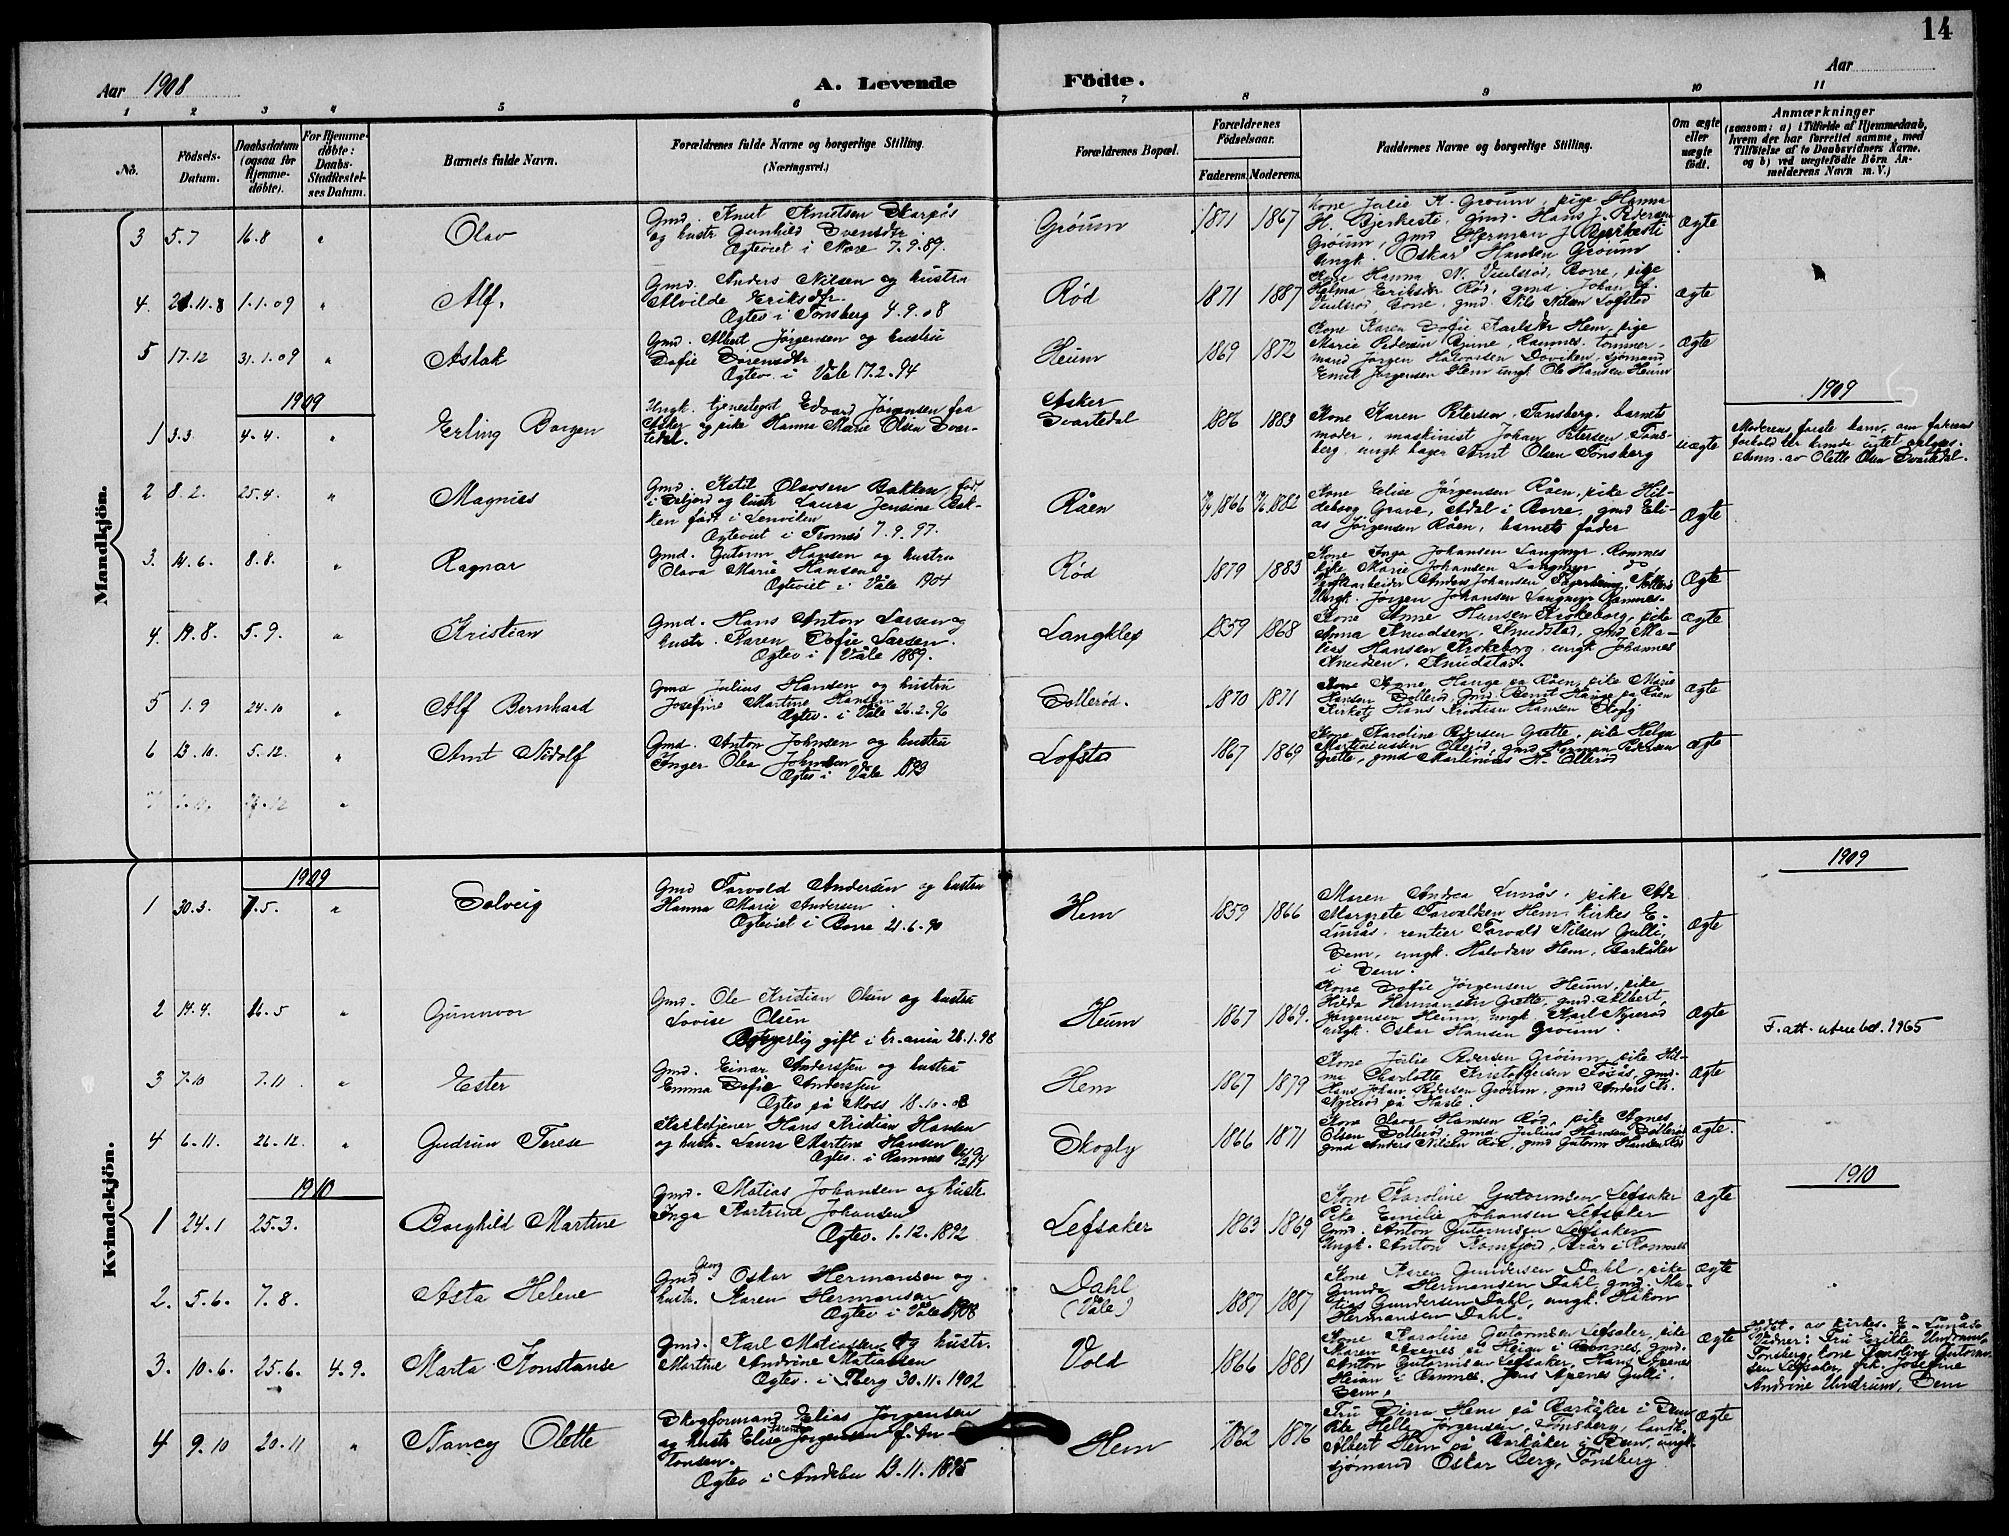 14
Aar 1908
A. Levende Födte.
Aar
1 2 3 4 5 6 7 8 9 10 11
No.
Födsels-Datum.
Daabsdatum (ogsaa for Hjemmedöbte).
For Hjemmedöbte: Daabs-Stadfæstelses Datum.
Barnets fulde Navn.
Forældrenes fulde Navne og borgerlige Stilling.
(Næringsvei.)
Forældrenes Bopæl.
Forældrenes Födselsaar.
Faderens. Moderens.
Faddernes Navne og borgerlige Stilling.
Om ægte eller uægte födt.
Anmærkninger
(saasom: a) i Tilfælde af Hjemmedaab, hvem der har forrettet samme, med Tilföielse af to Daabsvidners Navne. og b) ved uægtefödte Börn Anmelderens Navn m. V.)
Mandkjön.
3 5.7 16.8 " Olav
Gmd. Knut Knutsen
og hustr. Gunhild Svensdtr
Egteviet i Nore 7.9.89.
Grøum 1871 1867
Kone Julie K. Grøum, pige Hanna
H. Bjerkesti, gmd. Hans J. Pedersen
Grøum, gmd Herman J Bjerkesti
Ungk. Oskar Hansen Grøum
Ægte
4. 11.8 1.1.09 " Alf.
Gmd. Anders Nilsen og hustru
Alvilde Eriksdtr.
Egtev i Tønsberg 4.9.08
Rød 1871 1887
Kone Hanna N. Borre, pige
Halma Eriksdtr Rød, gmd. Johan
gmd Nils Nilsen Lofstad
Ægte
5 17.12 31.1.09 " Aslak
Gmd. Albert Jørgensen og hustru
Sofie Sørensdtr
Egtev. i Våle 17.2.94
Heum 1869 1872
Kone Karen Sofie Karlsdtr Hem, pige
Marie Pedersen Ramnes. tømmer-
mand Jørgen Halvorsen sjømand
Emil Jørgensen Hem ungk. Ole Hansen Heum
Ægte
1909
1 3.3. 4.4. " Erling Borgen
Ungk. tjenestegut Edvard Jørgensen fra
Asker og pike Hanna Marie Olsen Svar-
tedal.
Asker
Svartedal 1886 1883
Kone Karen Petersen, Tønsberg. barnets
moder, maskinist Johan Petersen Tøns-
berg, ungk bager Arnt Olsen Tønsberg
uægte
1909
Moderens første barn, om faderens
forhold her kunde intet oplyses.
Anm. av Olette Olsen Svartedal.
2 8.2. 25.4. " Magnus
Gmd. Ketil Olavsen Bakken, fød
i Seljord og hustr Laura Jensine Bak-
ken født i Lenviken
Egteviet i Tromsø 7.9.97.
Råen 1866 1882
Kone Elise Jørgensen Råen, pike Hil-
deborg Grave, Adal i Borre, gmd Eli-
as Jørgensen Råen, barnets fader
Ægte
3. 14.6. 8.8. " Ragnar
Gmd. Gutorm Hansen og hustru
Olava Marie Hansen
Egteviet i Våle 1904
Rød 1879 1883
Kone Inga Johansen Langmyr Ramnes
pike Marie Johansen Langmyr do
Anders Johansen
Ungk. Jørgen Johansen Langmyr Ramnes.
Ægte
4. 19.8. 5.9. " Kristian
Gmd. Hans Anton Larsen og
hustr. Karen Sofie Larsen.
Egtev i Våle 1889.
Langklep 1859 1868
Kone Anne Hansen Krokeborg, pike
Anna Knudsen, Knudstad, gmd Ma-
tias Hansen Krokeborg. ungk Johannes
Knudsen. Knudstad.
Ægte
5 1.9 24.10 " Alf Bernhard
Gmd Julius Hansen og hustru
Josefine Martine Hansen
Egtev. i Våle 26.2.96
Sollerød. 1870 1871
Kone Hauge på Råen, pike Marie
Hansen Sollerød, Gmd Bernt Hauge på Råen
Kirketj Hans Kristian Hansen Skogby
Ægte
6 13.10. 5.12. " Arnt Nidolf
Gmd. Anton Johnsen og hustru
Inger Olea Johnsen
Egtev i Våle 1893
Lofstad 1867 1869
Kone Karoline Pedersen Grette, pike Helga
Martiniussen Ollerød, gmd Herman Pedersen
Grette, gmd Martinius H. Ollerød
Ægte
Kvindekjön.
1909
1 30.3. 7.5. " Solveig
Gmd Torvald Andersen og hustru
Hanna Marie Andersen
Egteviet i Borre 21.6.90
Hem 1859 1866
Maren Andrea Lunås, pike
Margrete Torvaldsen Hem, kirkes E.
Lunås, rentier Torvald Nilsen Gulli,
Sem, ungk. Halvdan Hem, Barkåker
i Sem.
Ægte
1909
2 14.4. 16.5 " Gunnvor
Gmd. Ole Kristian Olsen og hustru
Lovise Olsen
Borgerlig gift i kr.ania 28.1.98
Heum 1867 1869.
Kone Sofie Jørgensen Heum, pike
Hilda Hermansen Grette, gmd. Albert
Jørgensen Heum, ungk. Karl
ungk. Oskar Hansen Grøum.
Ægte
F. att. utstedt 1965
3 7.10 7.11 " Ester
Gmd. Einar Anderssen og hustru
Emma Sofie Anderssen
Egtev på Moss 18.10.08
Hem 1867 1879
Kone Julie Pedersen Grøum, pike Hil-
ma Charlotte Kristoffersen gmd.
Hans Johan Pedersen Grøum, gmd Anders
Ægte
4 6.11. 26.12. " Gudrun Terese
Kirketjener Hans Kristian Hansen
og hustr. Laura Martine Hansen
Egtev. i Ramnes
Skogby 1866 1871
Kone Olava Hansen Rød, pike Agnes
Olsen Sollerød, gmd Julius Hansen Sollerød
gmd Anders Nilsen Rød, gmd Gutorm Hansen Rød
Ægte.
1910
1 24.1 25.3. Borghild Martine
Gmd. Matias Johansen og hustr.
Inga Katrine Johansen
Egtev. 1.12.1892
Lefsaker 1863 1869
Kone Karoline Gutormsen Lefsaker
Pike Emilie Johansen Lefsaker
Gmd. Anton Gutormsen Lefsaker
Ungk. Anton i Ramnes
Ægte
1910
2. 5.6. 7.8. Asta Helene
Gmd. Georg Oskar Hermansen og
hustr. Karen Hermansen
Egtev i Våle 1908
Dahl
(Våle) 1887 1887
Kone Karen Gundersen Dahl, pike
Gunda Hermansen Dahl, gmd. Ma-
tias Gundersen Dahl, ungk. Håkon
Hermansen Dahl.
Ægte
3. 10.6. 25.6. 4.9. Marta Konstanse
Gmd. Karl Matiassen og hustr.
Martine Andrine Matiassen
Egtev. i Tberg 30.11.1902
Vold 1866 1881
Kone Karoline Gutormsen Lefsaker, pike
Maren Apenes på Heian i Ramnes, gmd.
Anton Gutormsen Lefsaker, Hans Apenes
Heian i Ramnes, Jens Apenes Gulli,
Sem.
Ægte
Hjdt. av kirkes. E. Lunås
Vidner: Fru Undrum,
Tønsberg, kone Karoline Gutorm-
sen Lefsaker, pik. Josefine
Andrine Undrum, Sem
4 9.10 20.11 " Nancy Olette
Skogformand Elias Jørgensen
og hustr Elise Jørgensen f. An-
tonsen.
Egtev i Andebu 13.11.1895
Hem 1862 1876
Fru Dina Hem på Barkåker i Sem
Pike Helli Jørgensen, Tønsberg, landh.
Albert Hem på Barkåker i Sem, ungk.
sjømand Oskar Berg, Tønsberg
Ægte